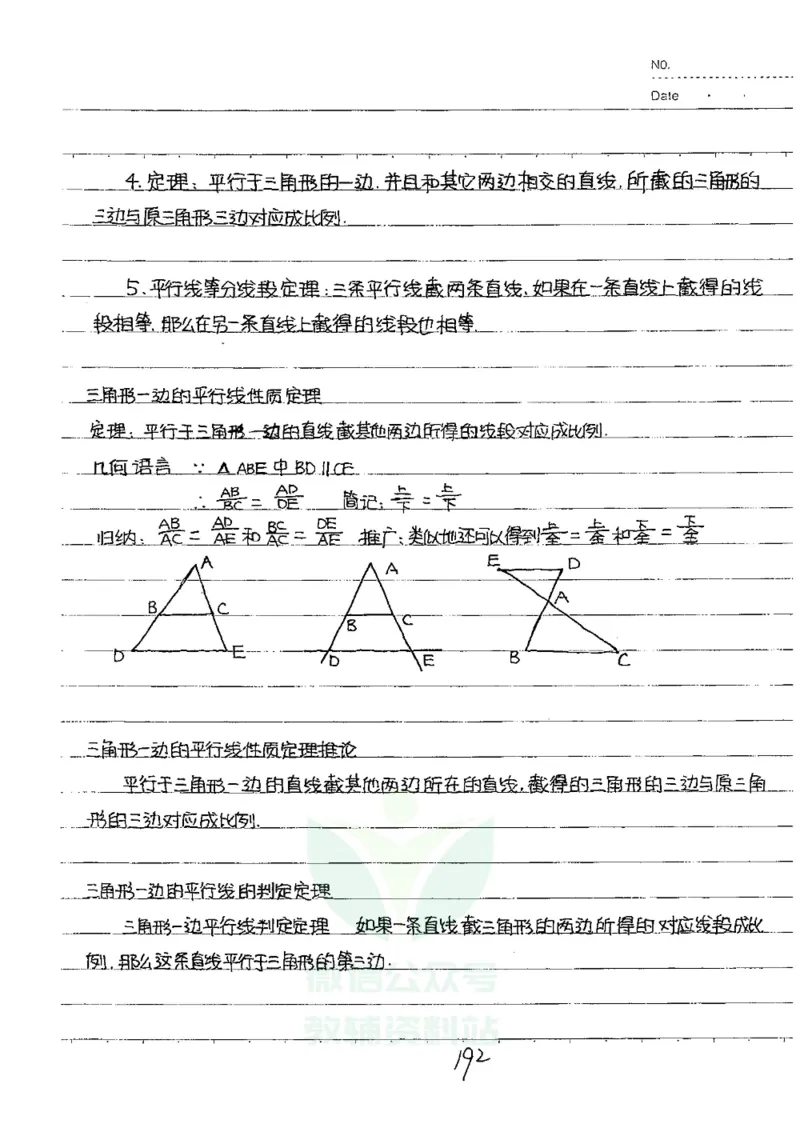 NO.
Date
4.定理:平行于三角形的一边.并且和其它两边相交的直线,所截的三角形的
三边与原三角形三边对应成比例.
5、平行线等分线段定理:三条平行线截两条直线、如果在一条直线上截得的线
段相等.那么在另一条直线上截得的线段也相等.
三角形一边的平行线性质定理
定理:平行于三角形一边的直线截其他两边所得的线段对应成比例.
几何语言 ∵ △ABE中BD∥CE
∴ AB/BC = AD/DE 简记:上/下 = 上/下
归纳:AB/AC = AD/AE 和 BC/AC = DE/AE 推广:类似地还可以得到上/全 = 上/全 和 下/全 = 下/全
A A E D
A
B C B C
D E D E B C
三角形一边的平行线性质定理推论
平行于三角形一边的直线截其他两边所在的直线,截得的三角形的三边与原三角
形的三边对应成比例.
三角形一边的平行线的判定定理
三角形一边平行线判定定理 如果一条直线截三角形的两边所得的对应线段成比
例,那么这条直线平行于三角形的第三边.
微信公众号
教辅资料站
192